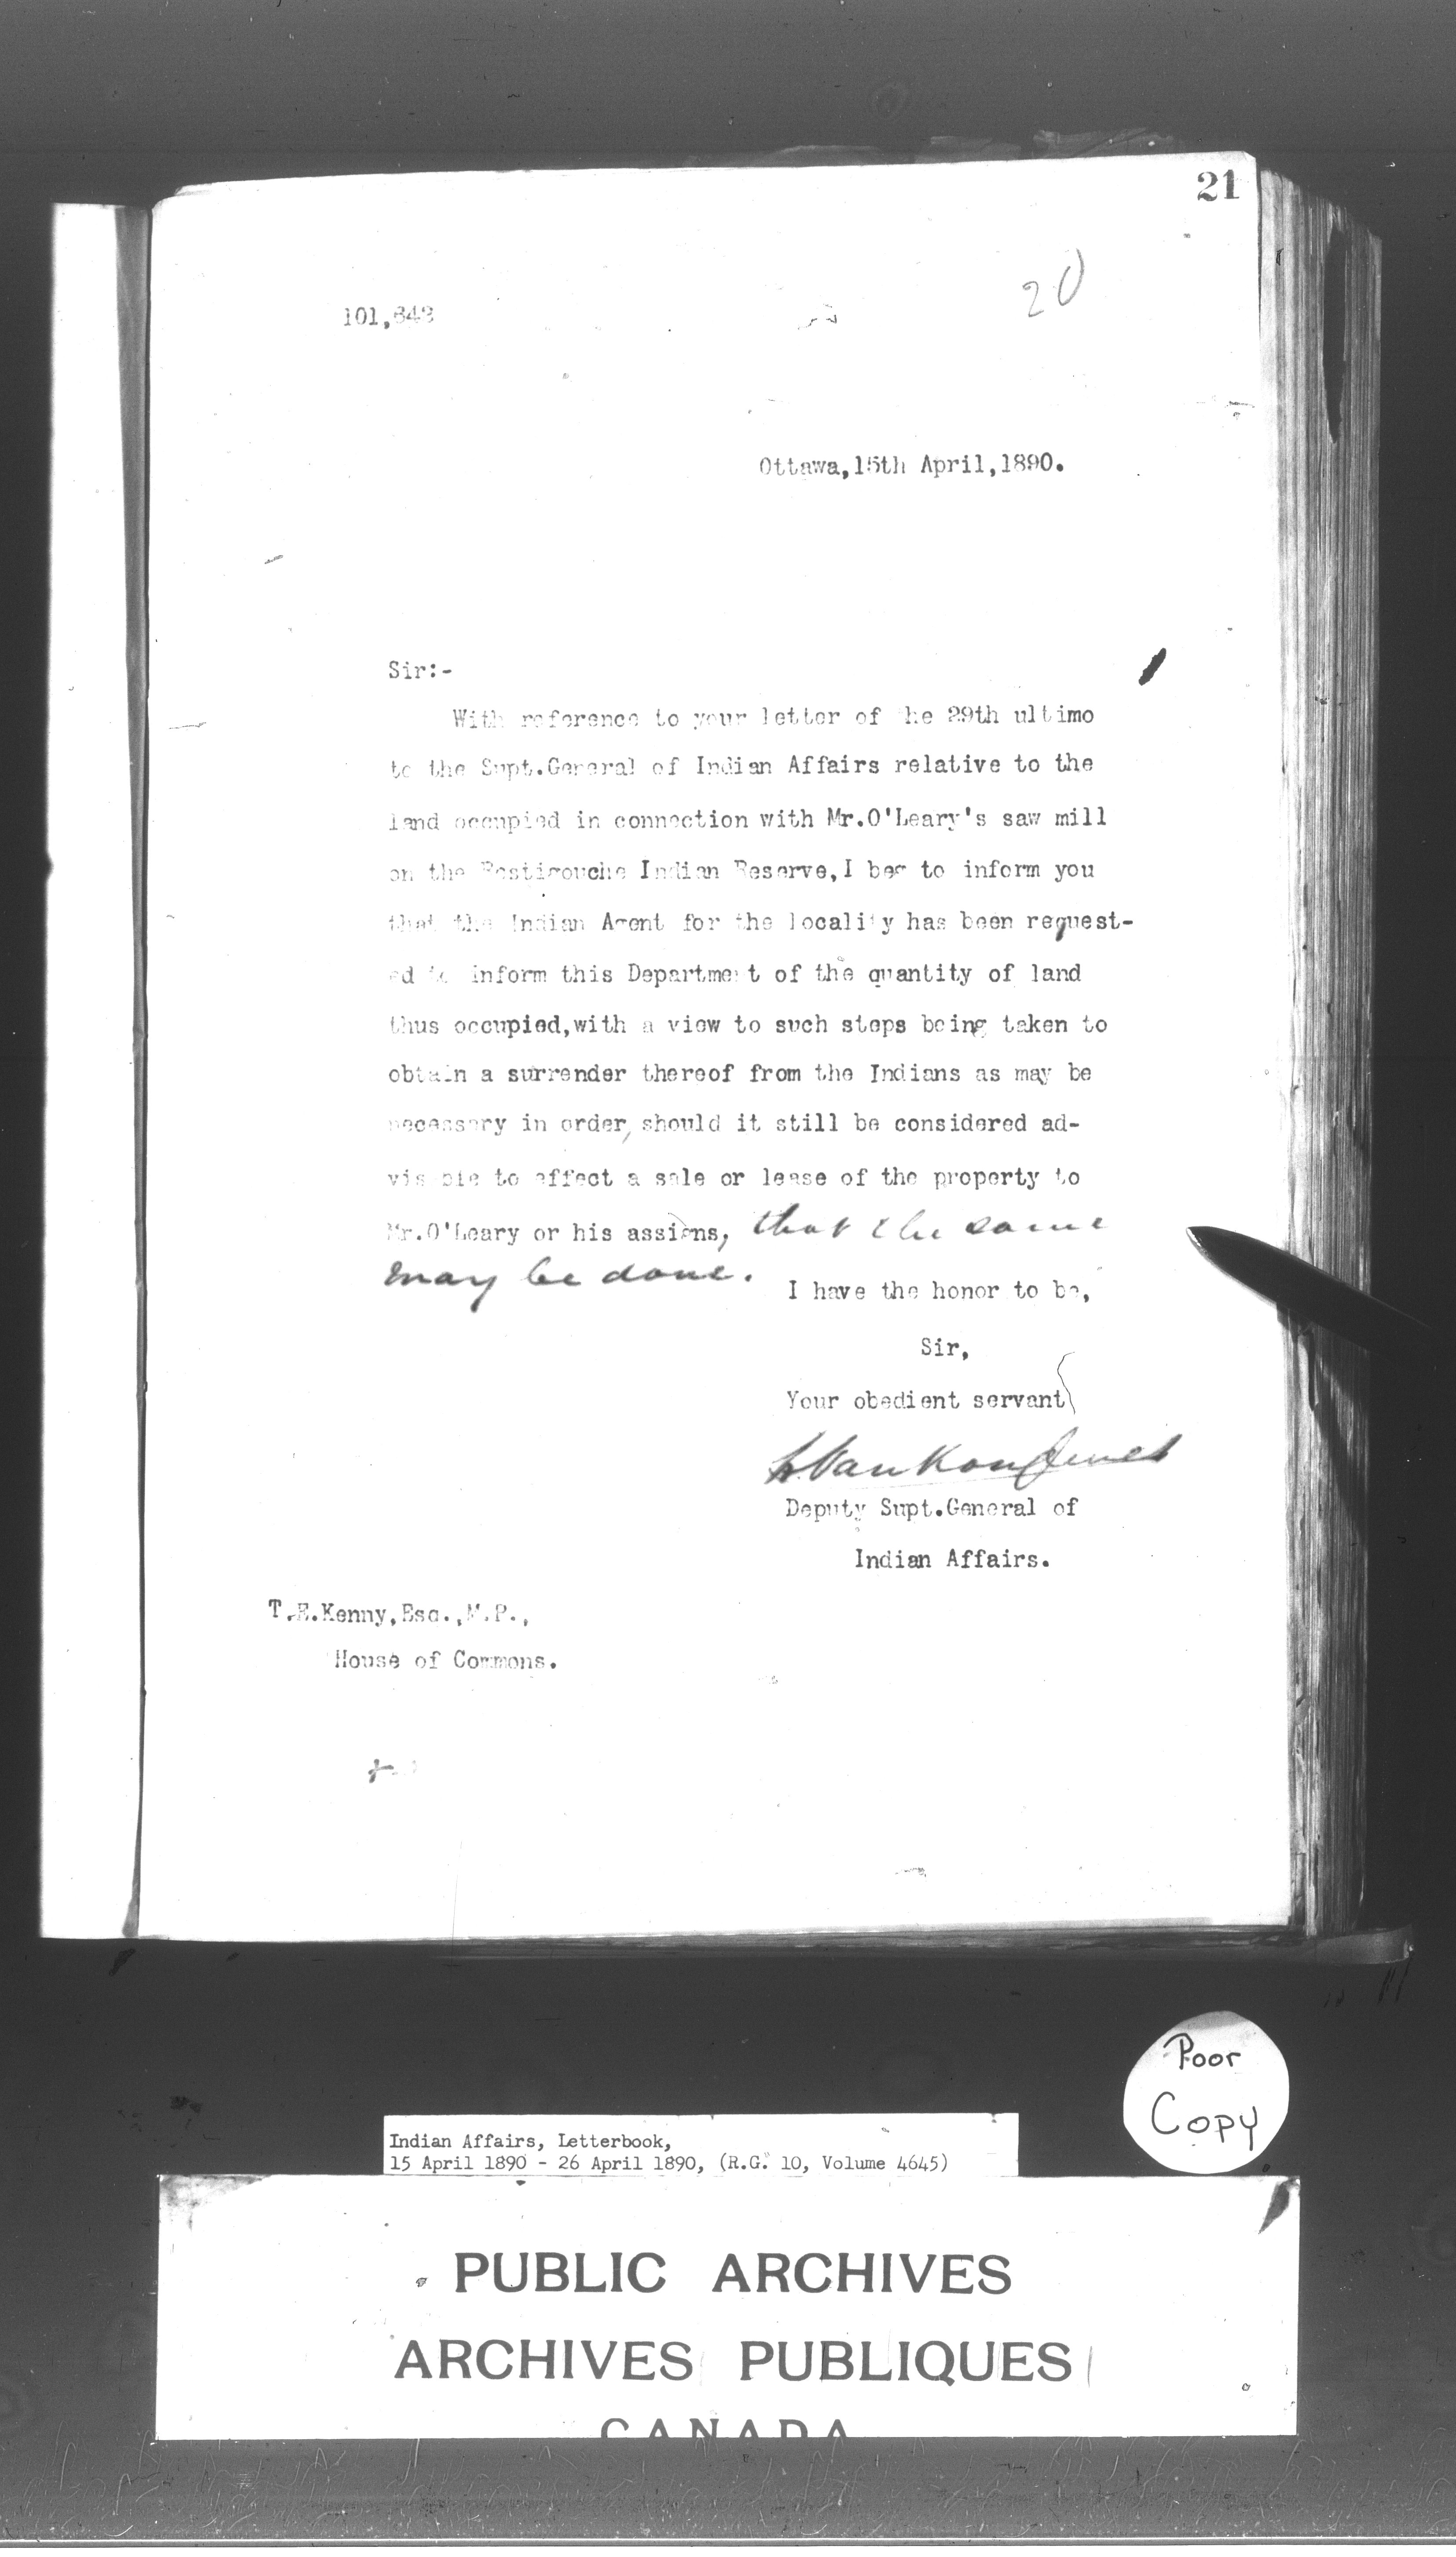 21
20
101,642
Ottawa,15th April,1890.
Sir:-
With reference to your letter of the 29th ultimo
to the Supt.General of Indian Affairs relative to the
land occupied in connection with Mr.O'Leary's saw mill
on the Restigouche Indian Reserve,I beg to inform you
that the Indian Agent for the locality has been request-
ed to inform this Department of the quantity of land
thus occupied,with a view to such steps being taken to
obtain a surrender thereof from the Indians as may be
necessary in order, should it still be considered ad-
visable to effect a sale or lease of the property to
Mr.O'Leary or his assigns, that the same
may be done.
I have the honor to be,
Sir,
Your obedient servant
L. Vankoughnet
Deputy Supt.General of
Indian Affairs.
T.E.Kenny,Esq.,M.P.,
House of Commons.
Poor
Copy
Indian Affairs, Letterbook,
15 April 1890 - 26 April 1890, (R.G. 10, Volume 4645)
PUBLIC ARCHIVES
ARCHIVES PUBLIQUES
CANADA